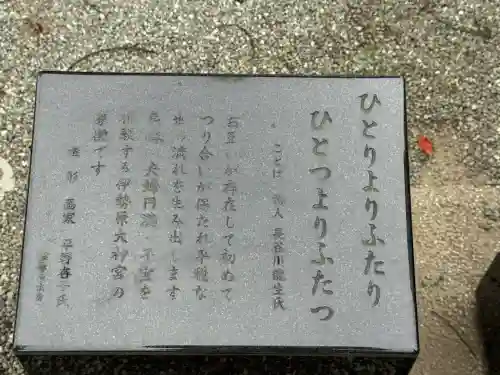 ひとりよりふたり
ひとつよりふたつ
ことば 詩人 長谷川龍生氏
お互いが存在して初めて
つり合いが保たれ平穏な
世の流れを生み出します
夫婦円満 平安を
する伊勢原大神宮の
です
画家
氏